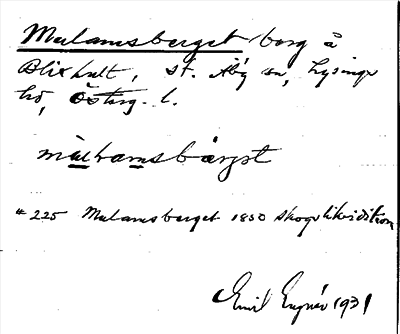 Mulamsberget berg å
Blixhult, St. Åby sn, Lysings
hd, Östg. l.
mulhamsbärget
#225 Mulamsberget 1850 skogslikvidition
Emil Engnér 1931